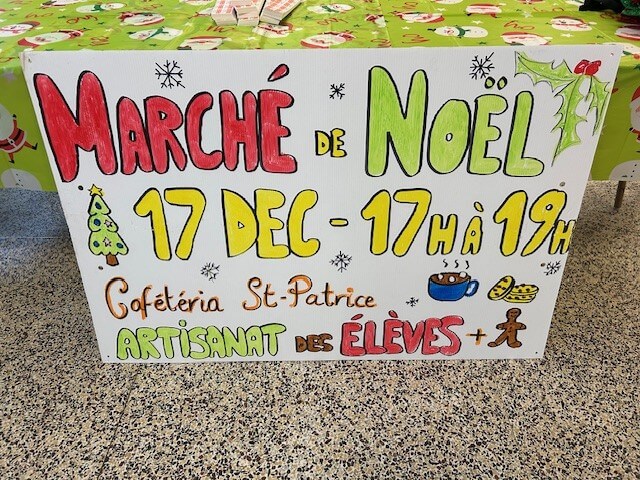 MARCHÉ DE NOËL
17 DEC - 17H À 19H
Cafétéria St-Patrice
ARTISANAT DES ÉLÈVES +